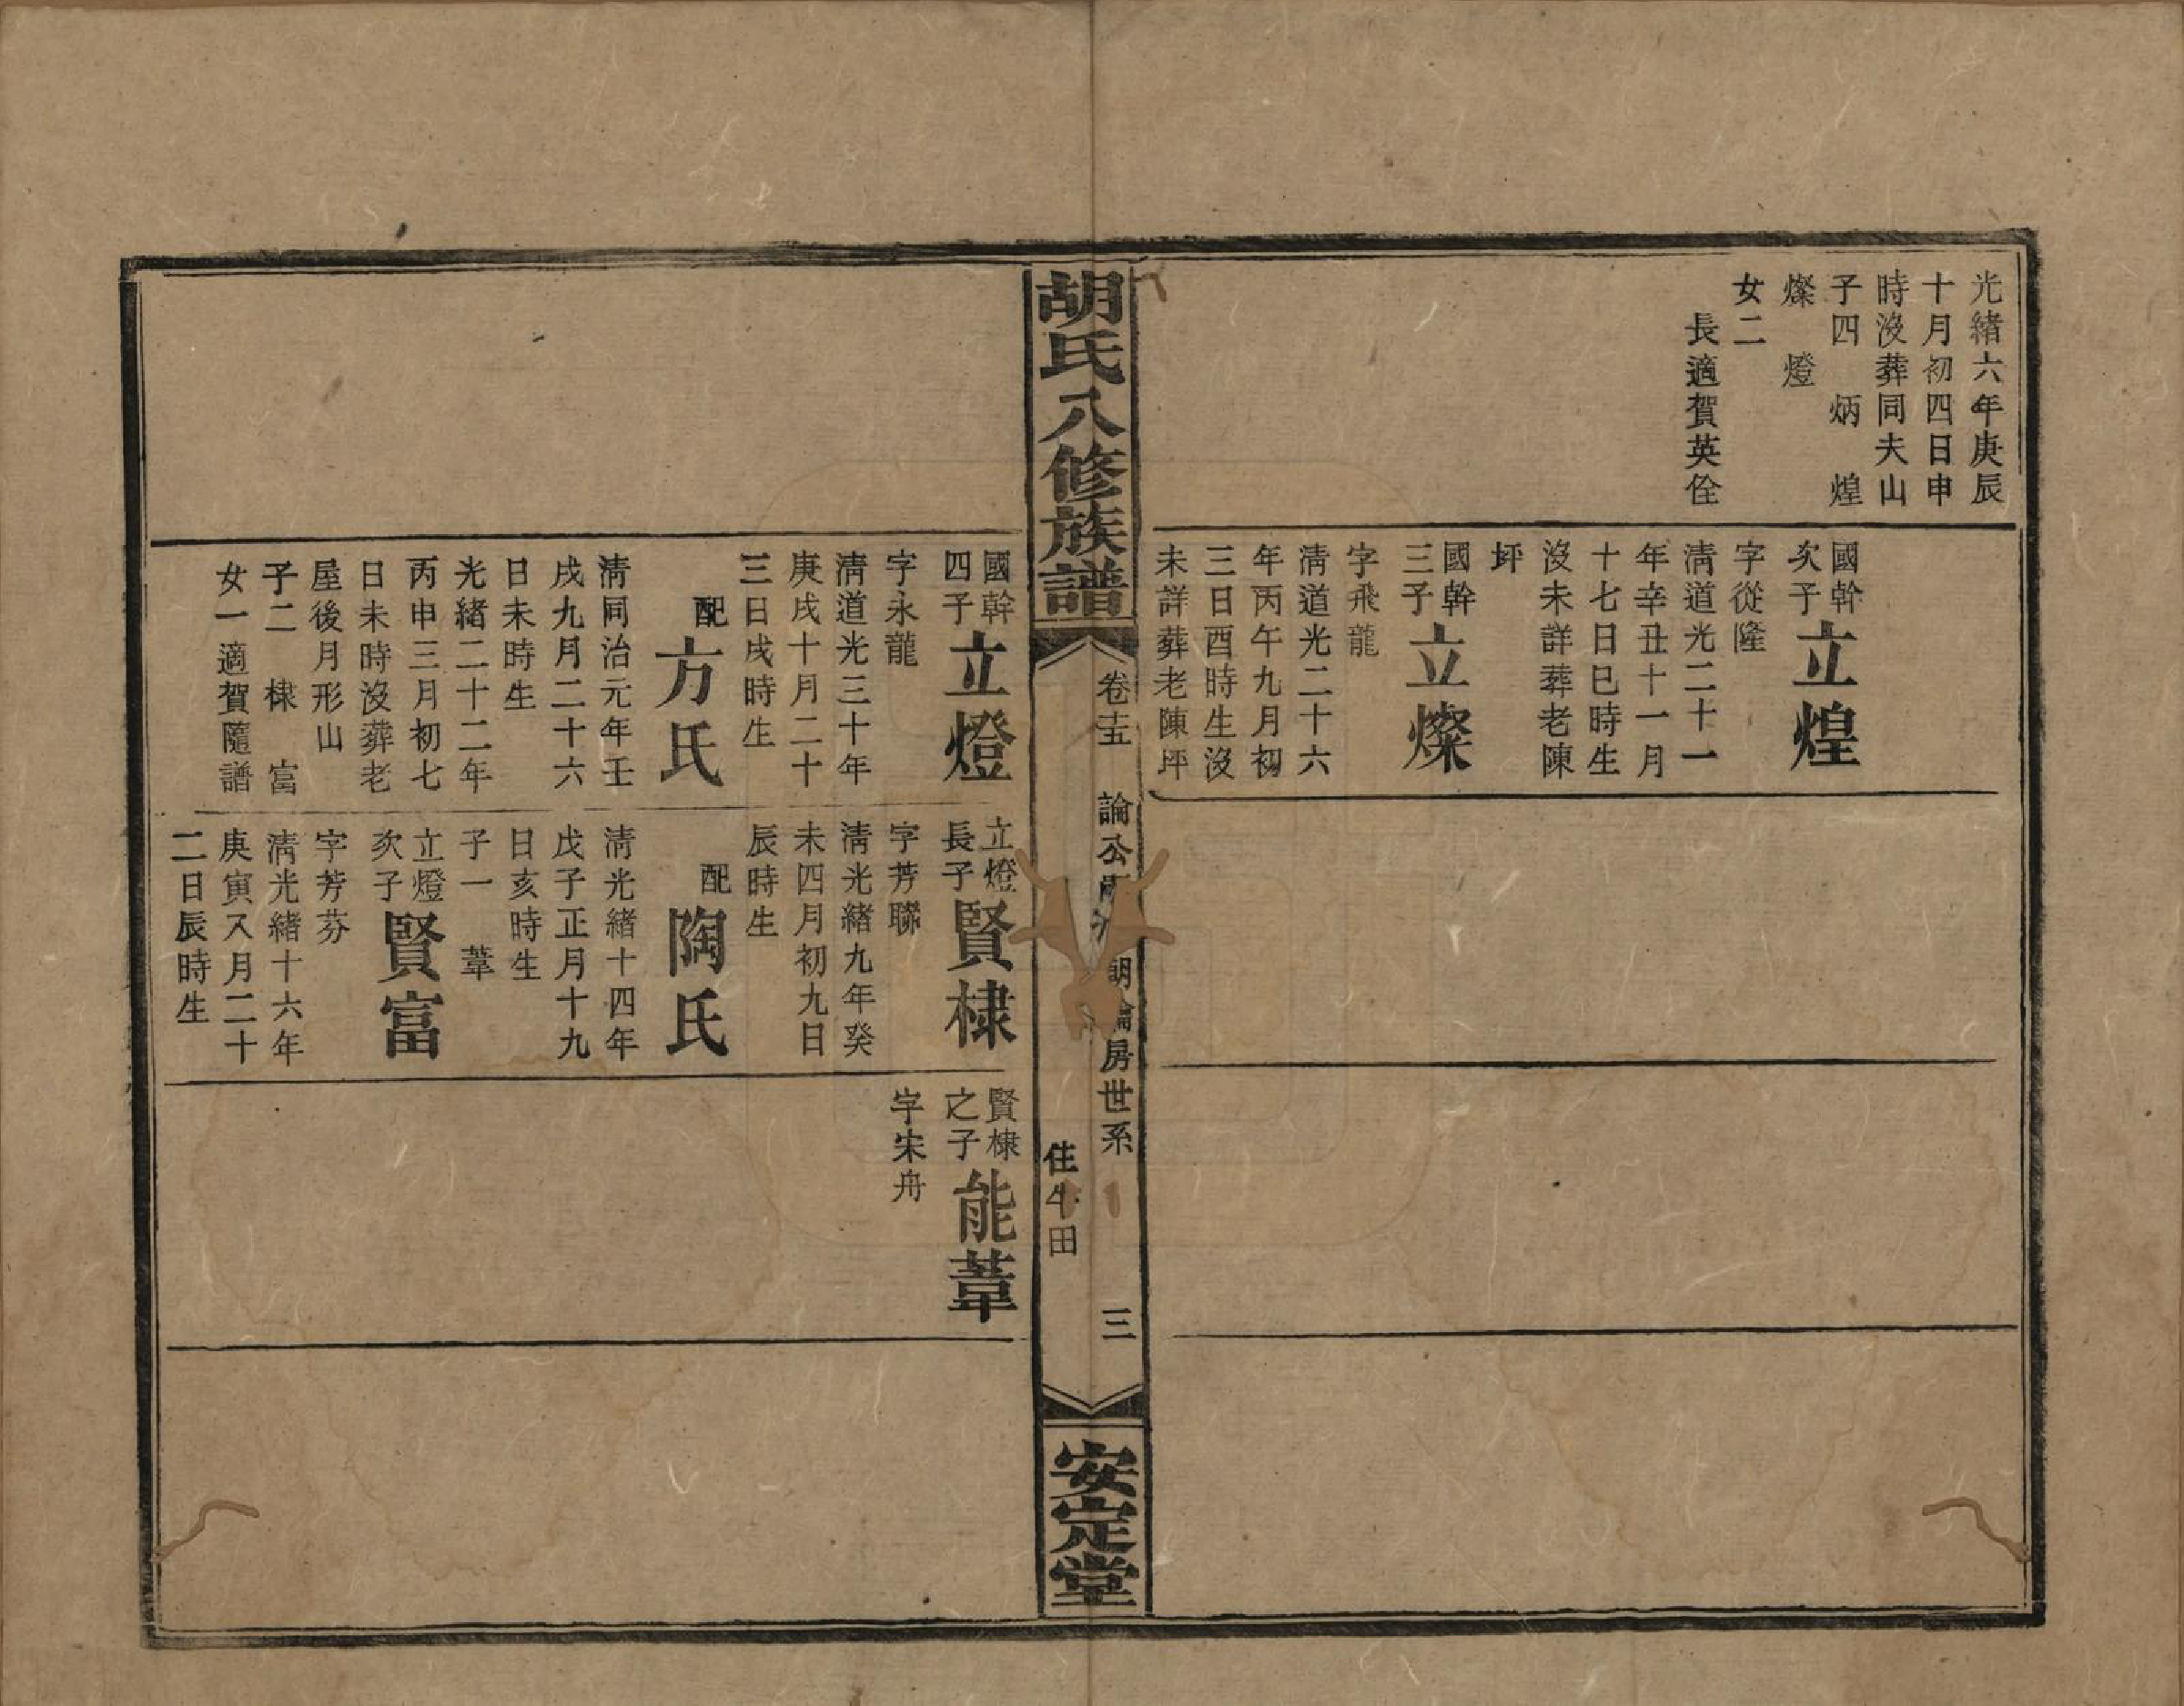 光緒六年庚辰
十月初四日申
時沒葬同夫山
子四　炳　煌
燦　燈
女二
長適賀英佺
國幹
次子
立煌
字從隆
清道光二十一
年辛丑十一月
十七日巳時生
沒未詳葬老陳
坪
國幹
三子
立燦
字飛龍
清道光二十六
年丙午九月初
三日酉時生沒
未詳葬老陳坪
胡氏八修族譜
卷十五
論公
房世系
住牛田
三
安定堂
國幹
四子
立燈
字永龍
清道光三十年
庚戌十月二十
三日戌時生
配
方氏
清同治元年壬
戌九月二十六
日未時生
光緒二十二年
丙申三月初七
日未時沒葬老
屋後月形山
子二　棣　富
女一適賀隨譜
立燈
長子
賢棣
字芳聯
清光緒九年癸
未四月初九日
辰時生
配
陶氏
清光緒十四年
戊子正月十九
日亥時生
子一　葦
立燈
次子
賢富
字芳芬
清光緒十六年
庚寅又月二十
二日辰時生
賢棣
之子
能葦
字宋舟